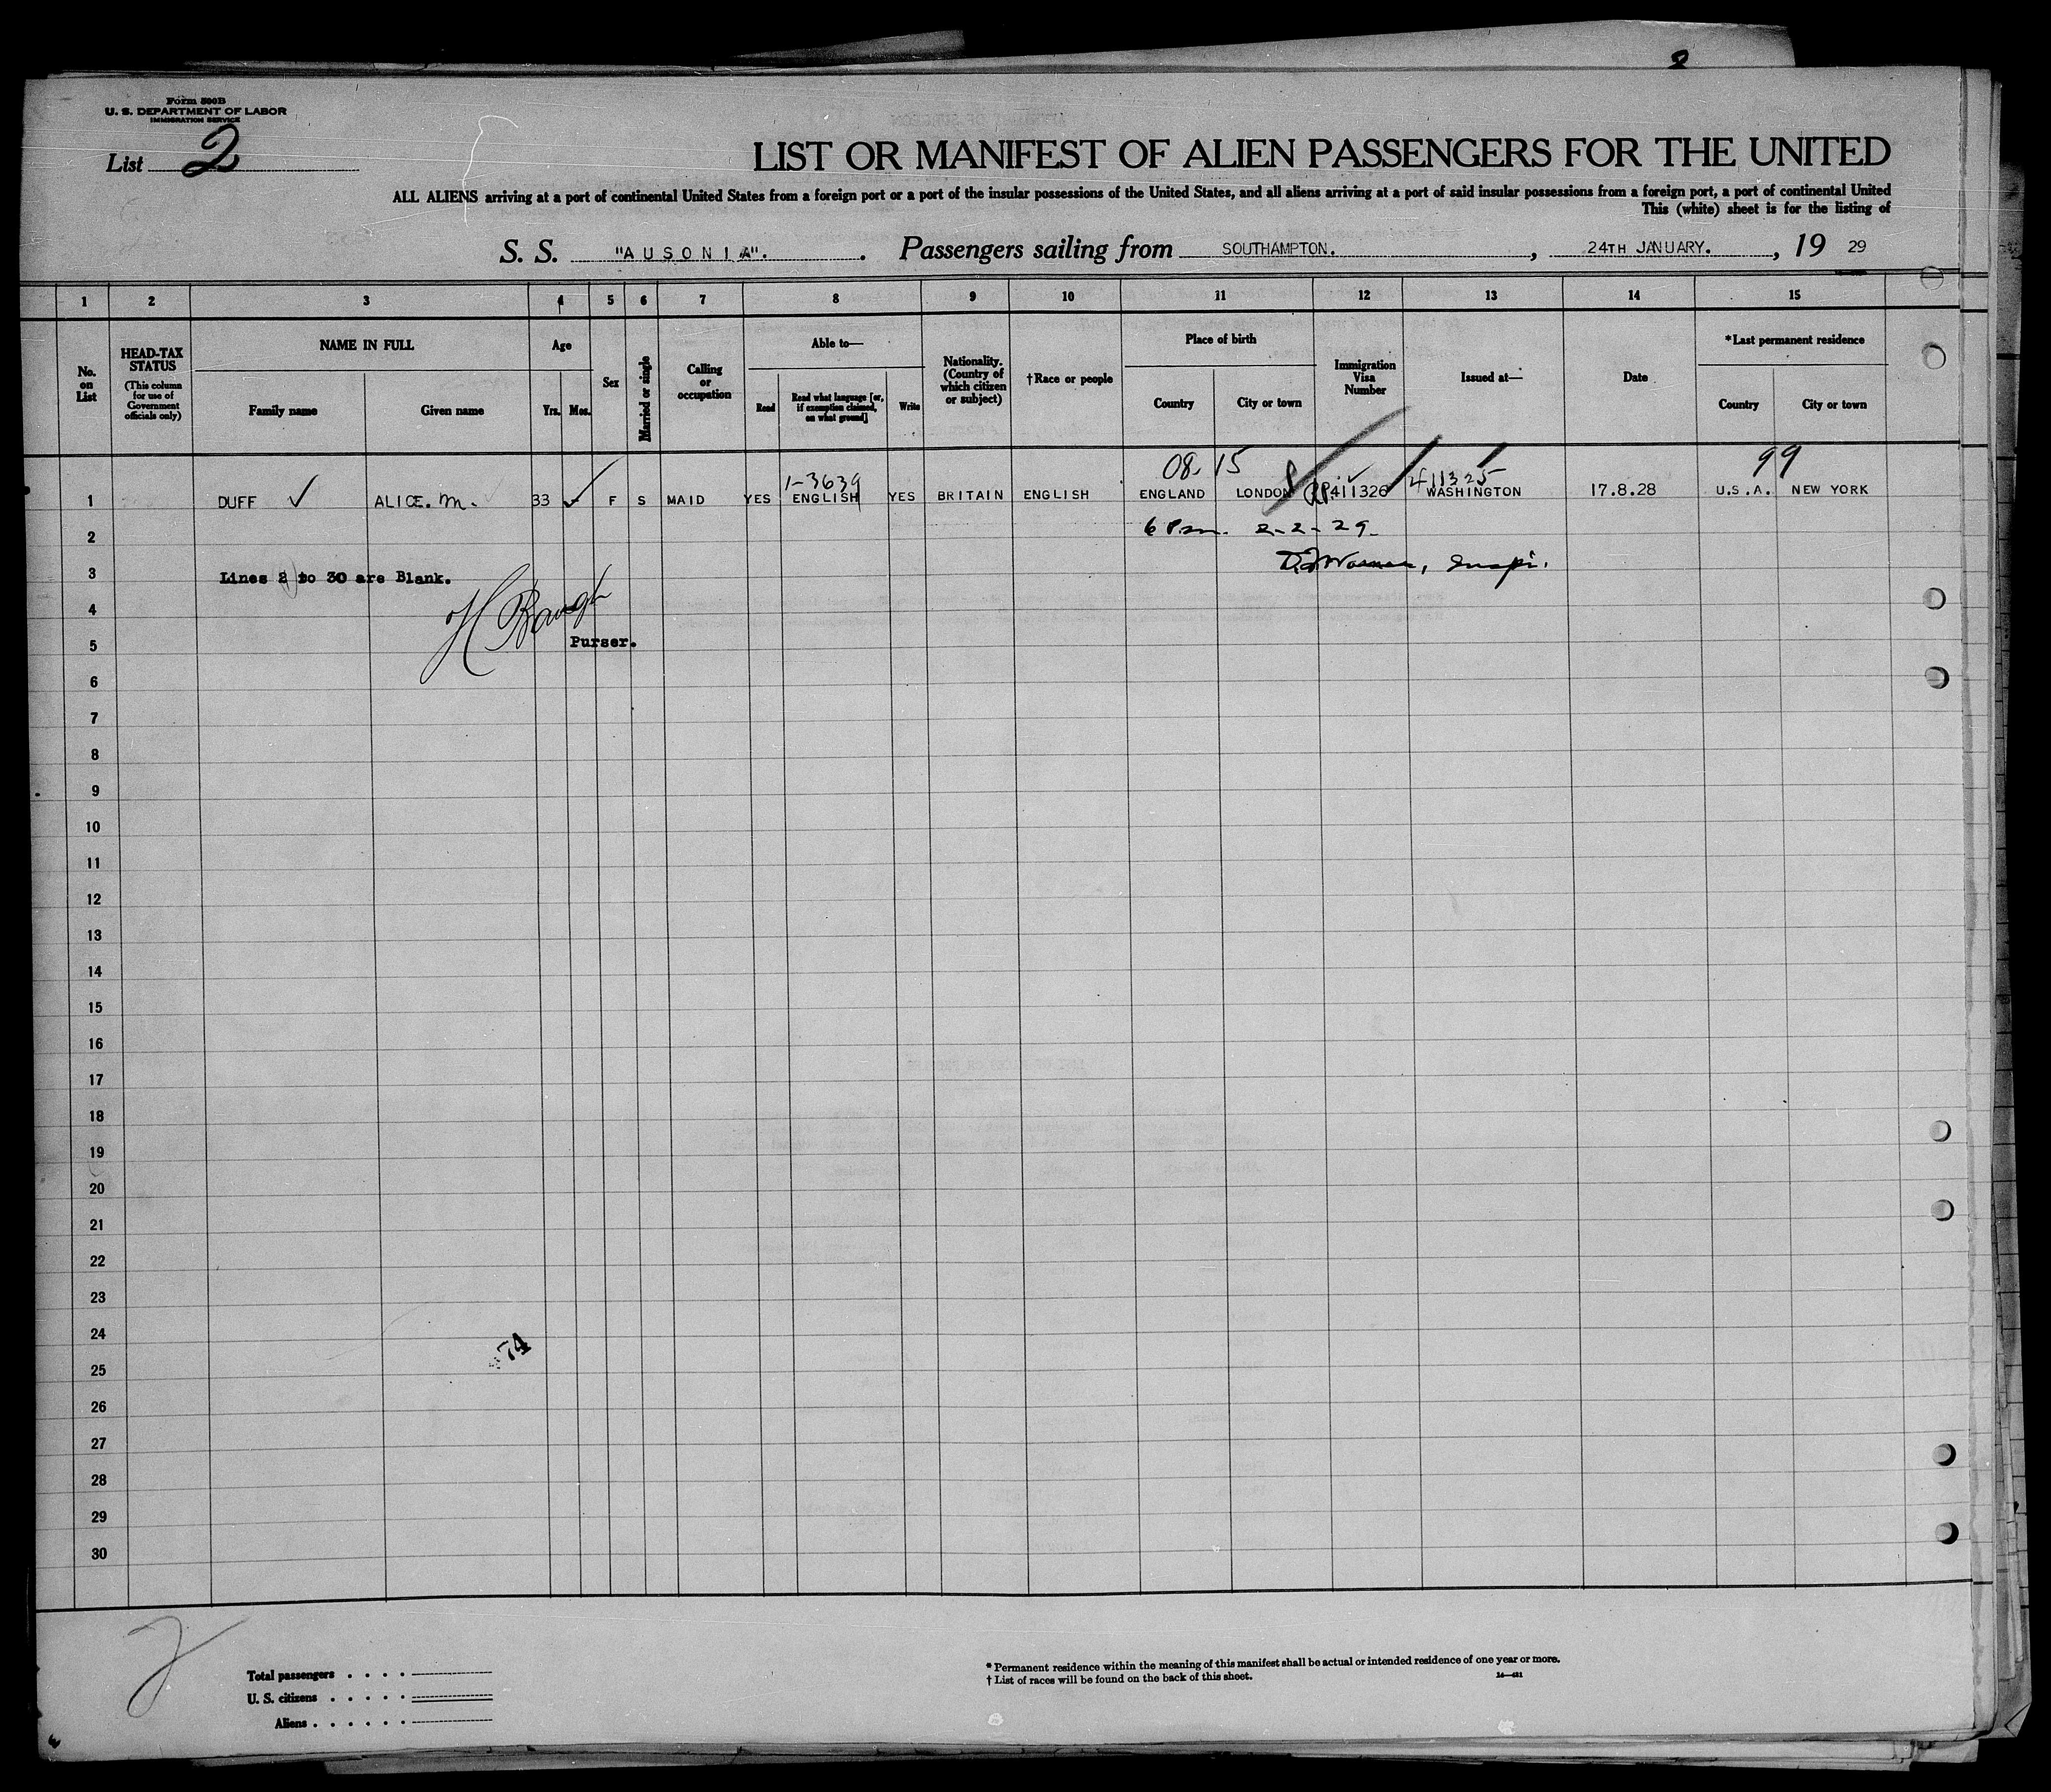 8
Form 500B
U. S. DEPARTMENT OF LABOR
IMMIGRATION SERVICE
List 2
LIST OR MANIFEST OF ALIEN PASSENGERS FOR THE UNITED
ALL ALIENS arriving at a port of continental United States from a foreign port or a port of the insular possessions of the United States, and all aliens arriving at a port of said insular possessions from a foreign port, a port of continental United
This (white) sheet is for the listing of
S. S. "AUSONIA". Passengers sailing from SOUTHAMPTON., 24TH JANUARY., 19 29
1 2 3 4 5 6 7 8 9 10 11 12 13 14 15
No. on List
HEAD-TAX STATUS (This column for use of Government officials only)
NAME IN FULL
Family name Given name
Age
Yrs. Mos.
Sex
Married or single
Calling or occupation
Able to—
Read Read what language [or, if exemption claimed, on what ground] Write
Nationality. (Country of which citizen or subject)
†Race or people
Place of birth
Country City or town
Immigration Visa Number
Issued at—
Date
*Last permanent residence
Country City or town
1-3639 08. 15 411325 99
1 DUFF ✓ ALICE. M. 33 ✓ F S MAID YES ENGLISH YES BRITAIN ENGLISH ENGLAND LONDON RP411326 WASHINGTON 17.8.28 U.S.A. NEW YORK
2 6 P.m. 2-2-29
3 Lines 2 to 30 are Blank. Inspr.
4 H Baugh
5 Purser.
6
7
8
9
10
11
12
13
14
15
16
17
18
19
20
21
22
23
24
74
25
26
27
28
29
30
2
Total passengers . . . .
U. S. citizens . . . . .
Aliens . . . . . .
* Permanent residence within the meaning of this manifest shall be actual or intended residence of one year or more.
† List of races will be found on the back of this sheet.